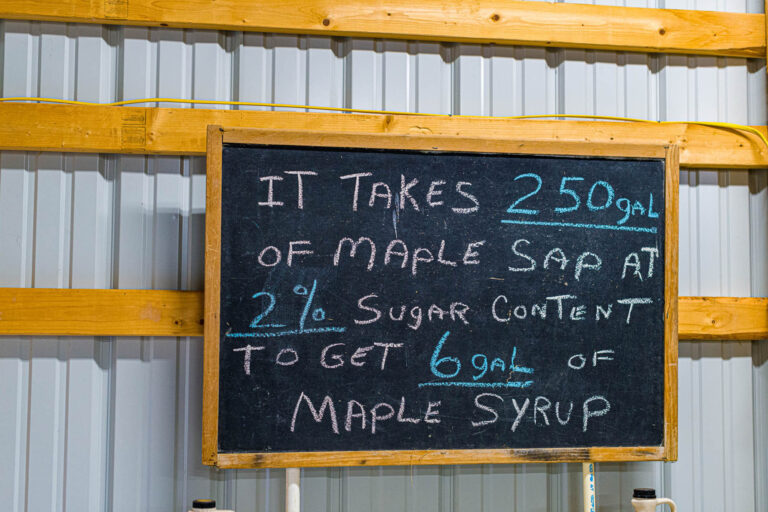 IT TAKES 250gal
OF MAPLE SAP AT
2% SUGAR CONTENT
TO GET 6gal OF
MAPLE SYRUP